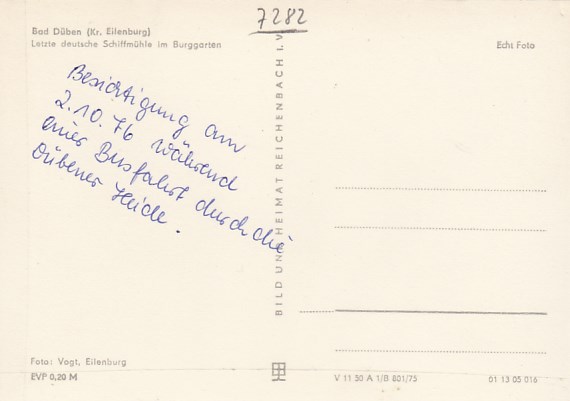 7282
Bad Düben (Kr. Eilenburg)
Letzte deutsche Schiffmühle im Burggarten
Echt Foto
Besichtigung am
2.10.76 während
einer Busfahrt durch die
Dübener Heide.
BILD UND HEIMAT REICHENBACH I. V.
Foto: Vogt, Eilenburg
EVP 0,20 M
V 11 50 A 1/B 801/75
01 13 05 016